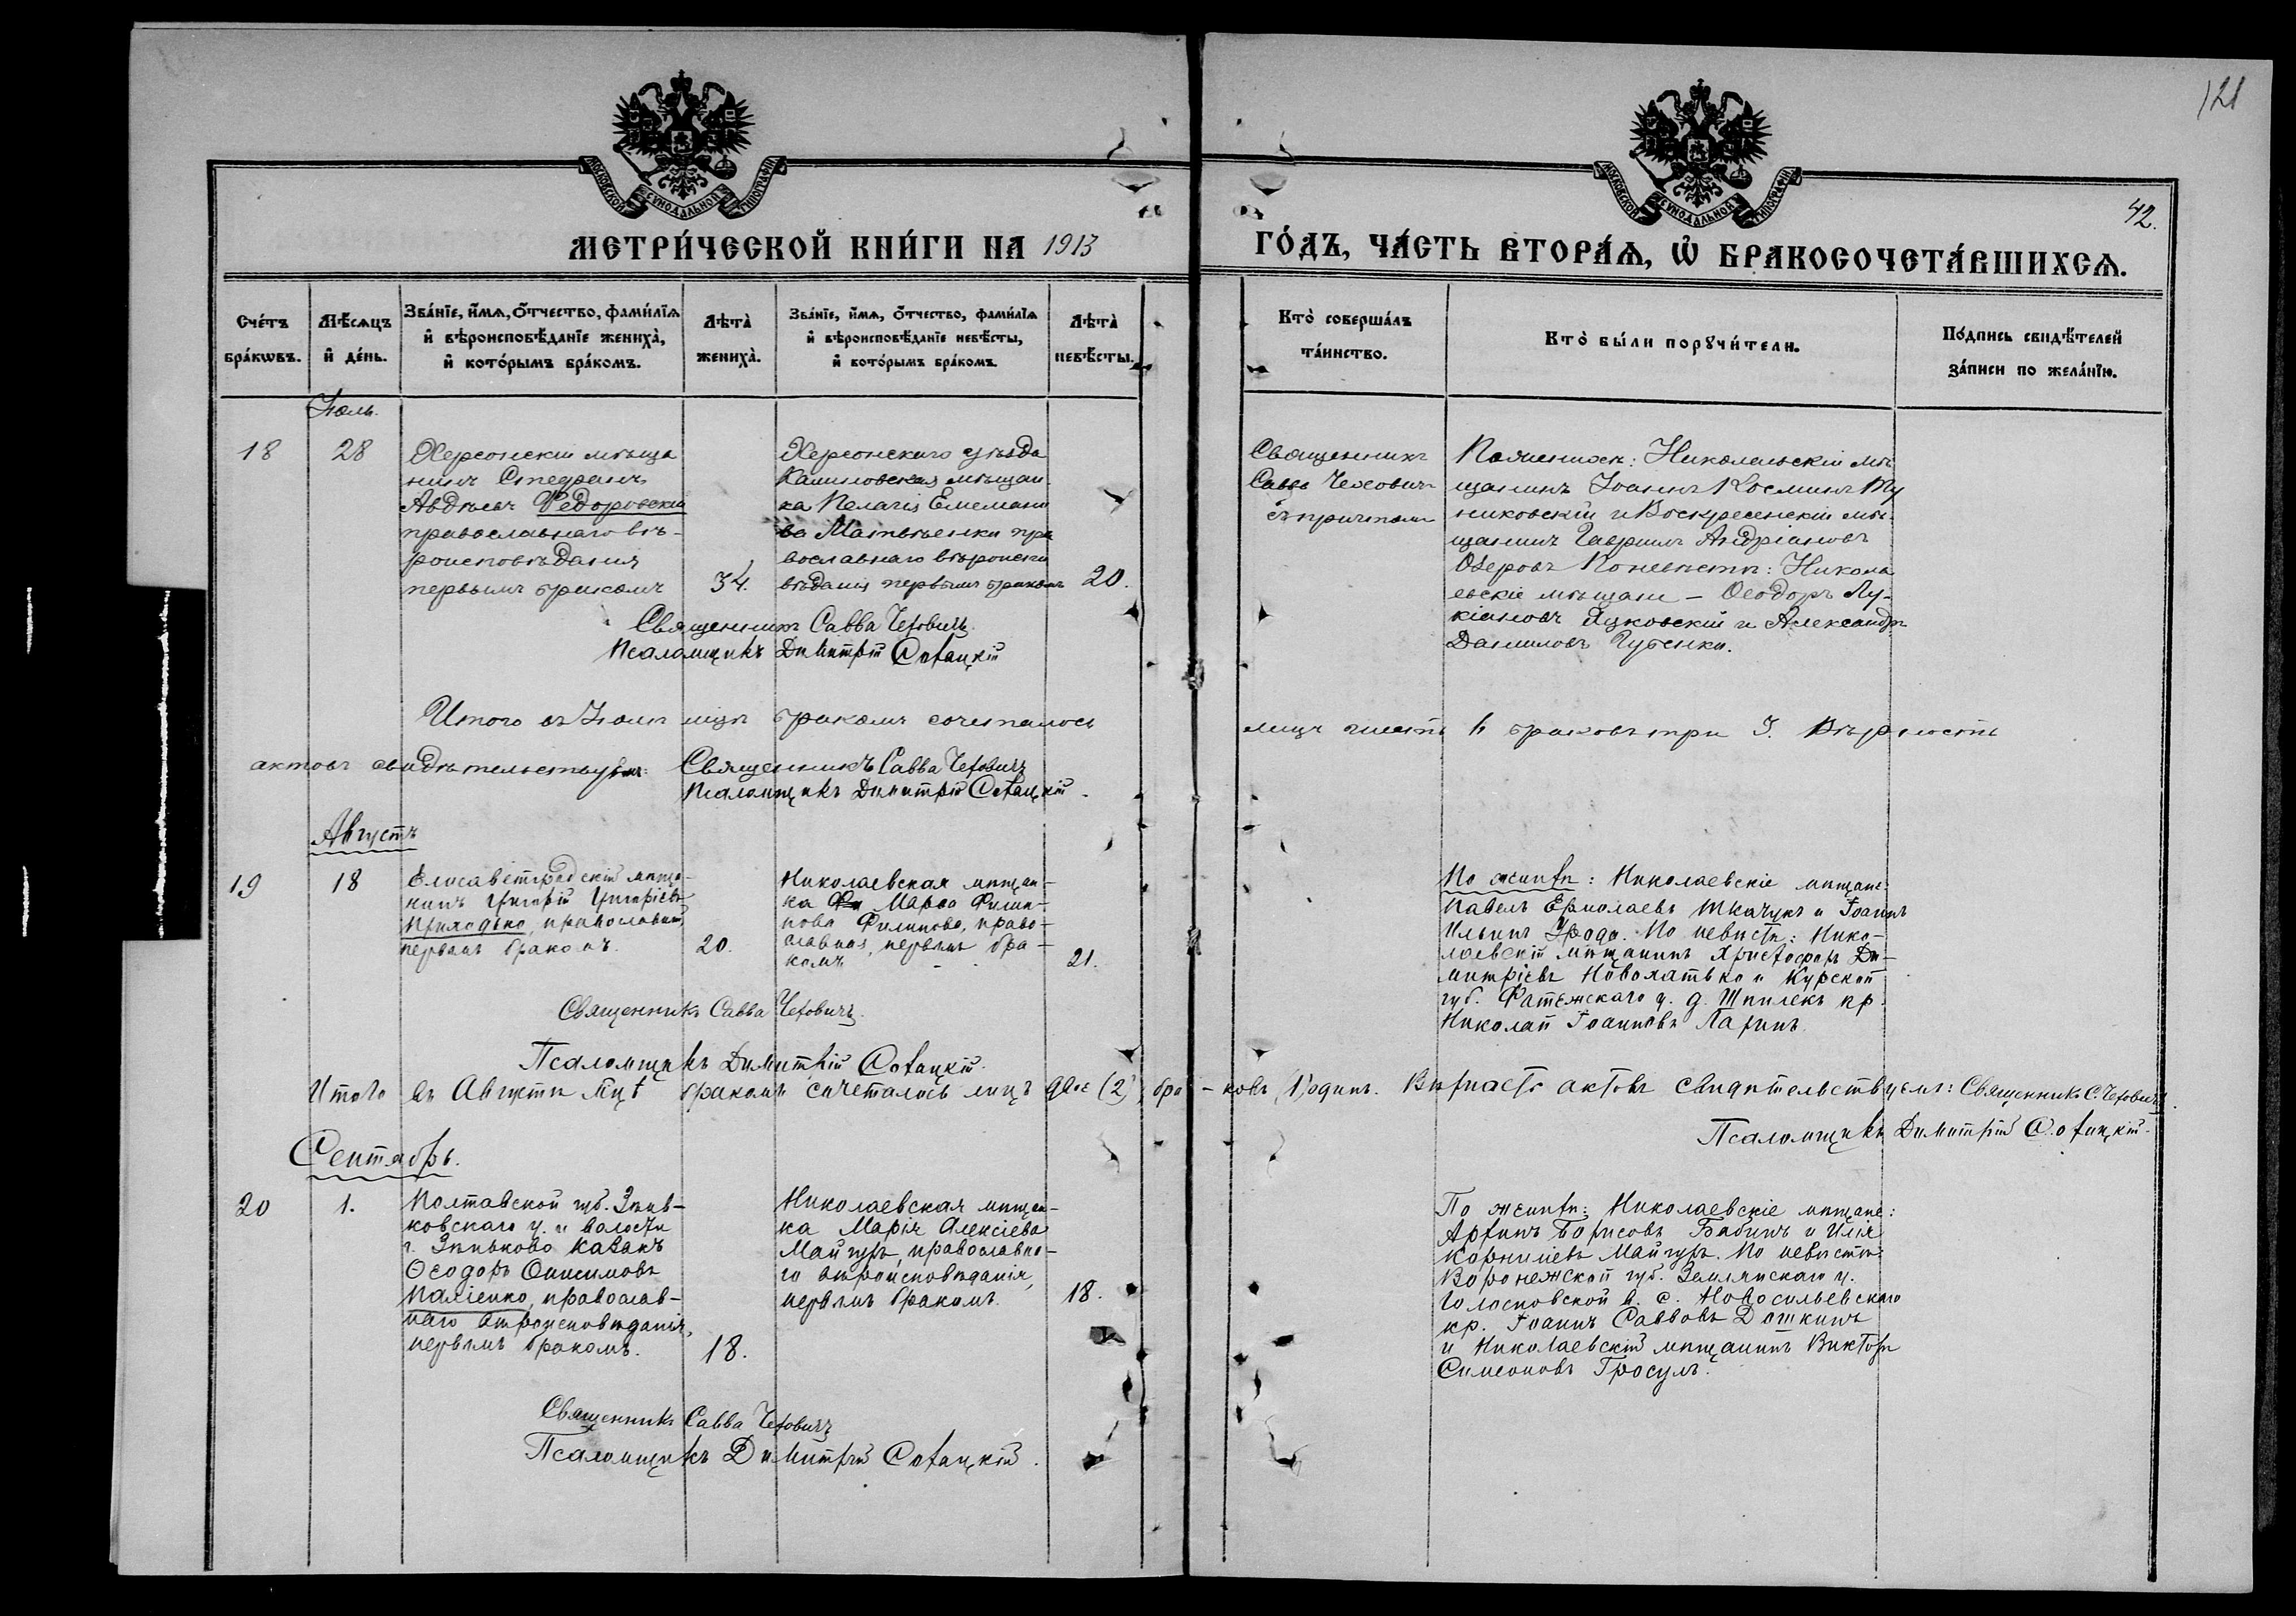 121
42.
МОСКОВСКОЙ СѴНОДАЛЬНОЙ ТИПОГРАФІИ
МОСКОВСКОЙ СѴНОДАЛЬНОЙ ТИПОГРАФІИ
МЕТРИ́ЧЕСКОЙ КНИ́ГИ НА 1913
ГО́ДЪ, ЧА́СТЬ ВТОРА́Ѧ, Ѽ БРАКОСОЧЕТА́ВШИХСѦ.
Сче́тъ бра́кѡвъ.
Мѣ́сѧцъ и҆ де́нь.
Зва́нїе, и҆́мѧ, ѻ҆́тчество, фами́лїѧ и҆ вѣроисповѣ́данїе жениха̀, и҆ кото́рымъ бра́комъ.
Лѣта̀ жениха̀.
Зва́нїе, и҆́мѧ, ѻ҆́тчество, фами́лїѧ и҆ вѣроисповѣ́данїе невѣ́сты, и҆ кото́рымъ бра́комъ.
Лѣта̀ невѣ́сты.
Кто̀ соверша́лъ та́инство.
Кто̀ бы́ли порꙋчи́тели.
По́дпись свидѣ́телей за́писи по жела́нїю.
Іюль.
18
28
Херсонскій мѣща
нинъ Стефанъ
Авдѣевъ Федоровскій
православнаго вѣ-
роисповѣданія
первымъ бракомъ
34.
Херсонскаго уѣзда
мѣщан
ка Пелагія Емельяно
ва Матвѣенко пра
вославнаго вѣроиспо
вѣданія первымъ бракомъ
20.
Священникъ
Савва Чехович
съ причтомъ
По женихѣ: Николаевскій мѣ
щанинъ Іоаннъ Косминъ
и Воскресенскій мѣ-
щанинъ Гавріилъ Андріановъ
Озеровъ По невѣстѣ: Никола
евскіе мѣщане – Ѳеодоръ Лу-
кіановъ Яцковскій и Александръ
Даниловъ Губенко.
Священникъ Савва Чехович
Псаломщикъ Димитрій
Итого въ Іюлѣ мцѣ бракомъ сочеталось лицъ шесть 6 браковъ три 3. Вѣрность
актовъ свидѣтельствуемъ: Священникъ Савва Чехович
Псаломщикъ Димитрій
Августъ
19
18
Елисаветградскій мѣща-
нинъ Григорій Григорьевъ
Приходько, православный,
первымъ бракомъ.
20.
Николаевская мѣщан-
ка Марѳа Филип-
пова Филипова, право-
славная, первымъ бра-
комъ
21.
По женихѣ: Николаевскіе мѣщане:
Павелъ Ермолаевъ Ткачукъ и Іоаннъ
Ильинъ По невѣстѣ: Нико-
лаевскій мѣщанинъ Христофоръ Ди-
митріевъ и Курской
губ. Фатежскаго у. д. кр.
Николай Іоанновъ Ларинъ.
Священникъ Савва Чехович
Псаломщикъ Димитрій
Итого въ Августѣ мцѣ бракомъ сочеталось лицъ двое (2), бра-ковъ 1) одинъ. Вѣрность актовъ свидѣтельствуемъ: Священникъ С. Чехович
Псаломщикъ Димитрій
Сентябрь.
20
1.
Полтавской губ. Зѣнь-
ковскаго у. и волости
г. Зѣньково казакъ
Ѳеодоръ Онисимовъ
Паліенко, православ-
наго вѣроисповѣданія,
первымъ бракомъ.
18.
Николаевская мѣщан-
ка Марія Алексіева
Майгуръ, православна-
го вѣроисповѣданія,
первымъ бракомъ.
18.
По женихѣ: Николаевскіе мѣщане:
Борисовъ Бабичъ и Илія
Корниліевъ Майгуръ. По невѣстѣ:
Воронежской губ. Землянскаго у.
в. с. Новосильевскаго
кр. Іоаннъ Саввовъ
и Николаевскій мѣщанинъ Викторъ
Симеоновъ Гросулъ.
Священникъ Савва Чехович
Псаломщикъ Димитрій